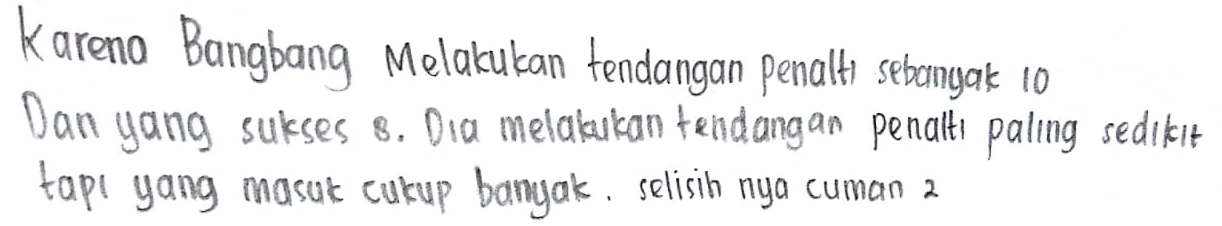 Kareno Bangbang Melakukan tendangan penalti sebanyak 10
Dan yang sukses 8. Dia melakukan tendangan penalti paling sedikit
tapi yang masuk cukup banyak. selisih nya cuman 2